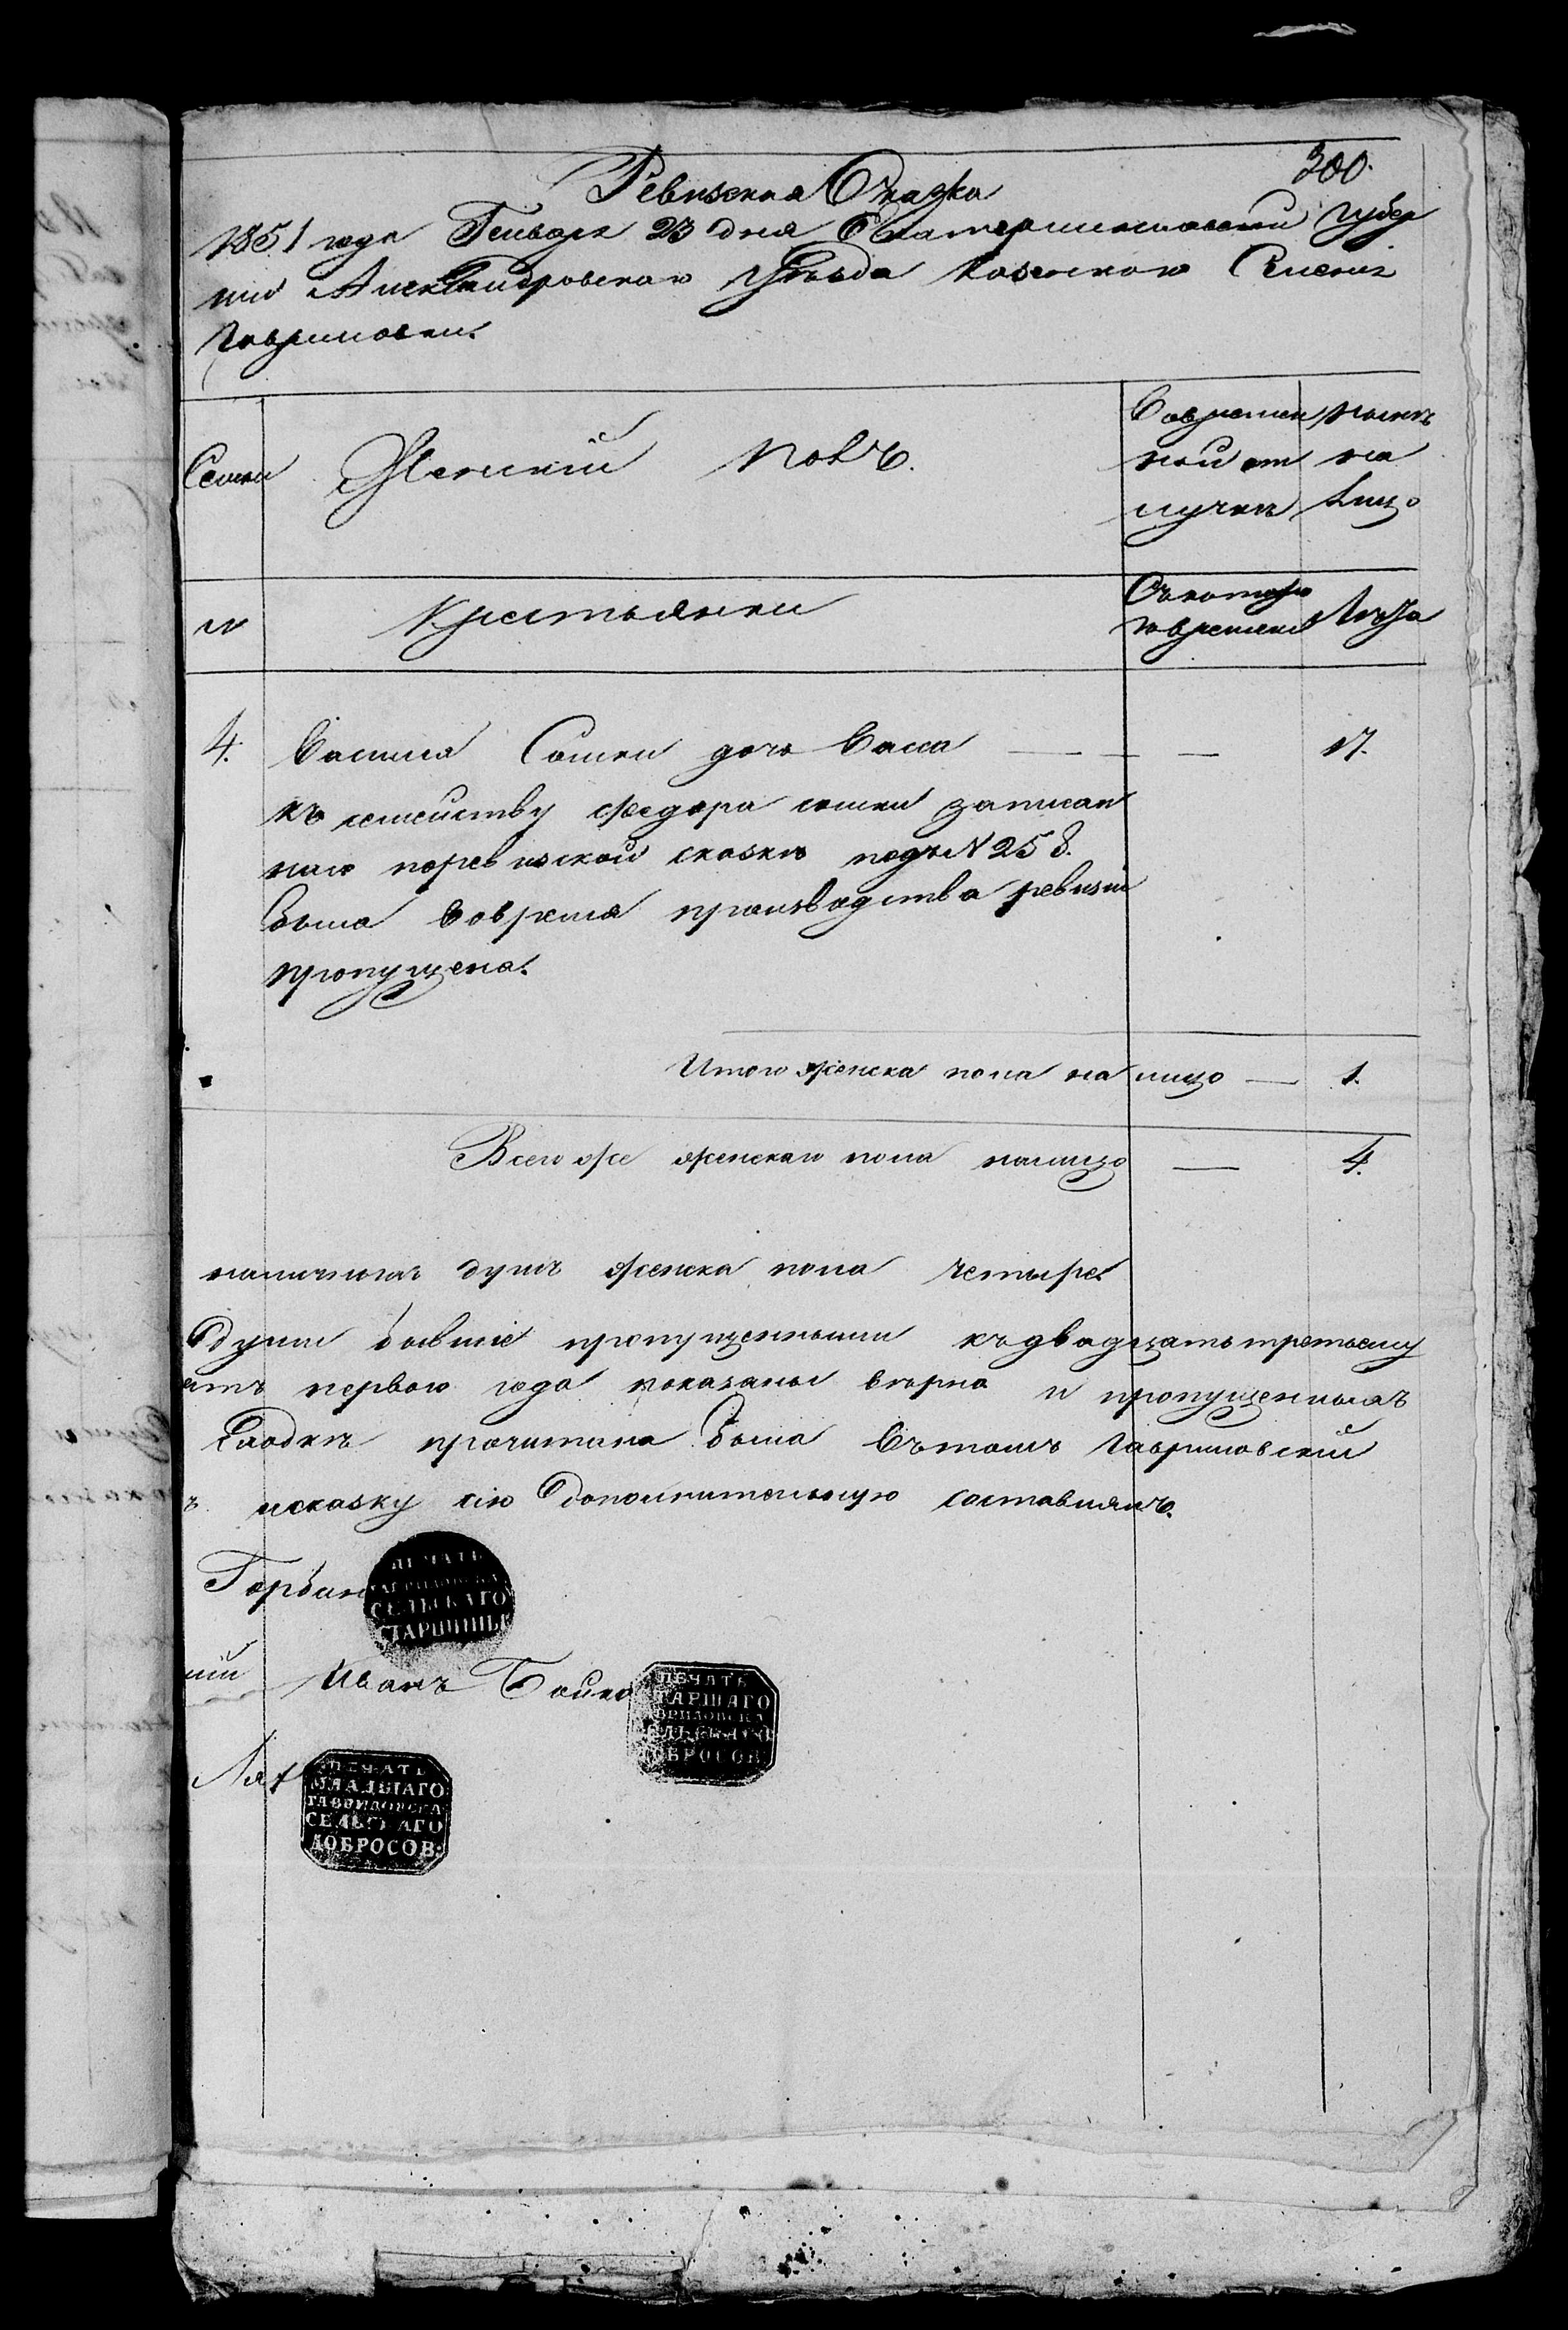 300.
Ревизская Сказка
1851 года Генваря 23 дня Екатеринославской губер
нии Александровского Уѣзда Казенного Селения
Гавриловки.
Семьи
Женскій полъ.
Во времен
ной от
лучкѣ
Нынѣ
на
лицо
№
Крестьянки
Съ котора
го времени
Лѣта
4. Василия Сомки дочь Васса — — 17.
къ семейству Федора Сомки записан
ного по ревизской сказкѣ подъ N 258.
была во время производства ревизіи
пропущена.
Итого женска пола на лицо — 1.
Всего же женскаго пола налицо — 4.
наличныхъ душъ женска пола четыре.
души бывшіе пропущенными къ двадцать третьему
ятъ первого года показаны вѣрно и пропущенныхъ
сходкѣ прочитана была въ томъ Гавриловскій
ъ и сказку сію дополнительную составлялъ.
Горбан
ПЕЧАТЬ
ГАВРИЛОВСКА
СЕЛЬСКАГО
СТАРШИНЫ
шій Иванъ Бойко
ПЕЧАТЬ
СТАРШАГО
ГАВРИЛОВСКА
СЕЛЬСКАГО
ДОБРОСОВ:
Лях
ПЕЧАТЬ
МЛАДШАГО
ГАВРИЛОВСКА
СЕЛЬСКАГО
ДОБРОСОВ: